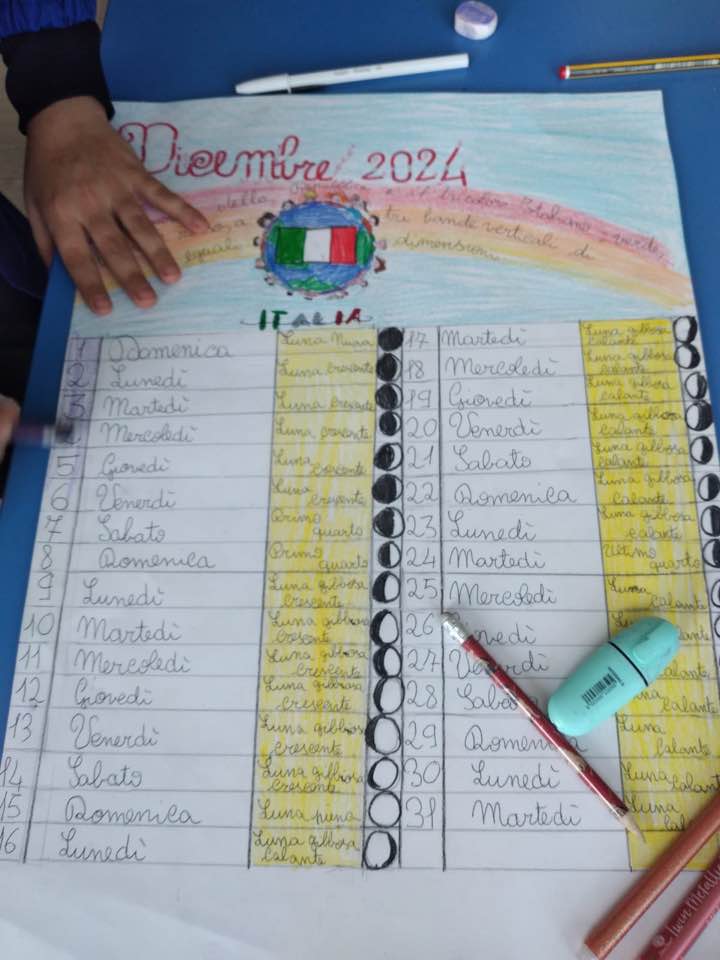 Dicembre 2024
della e il tricolore Italiano verde,
rossa tre bande verticali di
eguali dimensioni
ITALIA
1 Domenica Luna Nuova
2 Lunedì Luna crescente
3 Martedì Luna crescente
Mercoledì Luna crescente
5 Giovedì Luna crescente
6 Venerdì Luna crescente
7 Sabato Primo quarto
8 Domenica Primo quarto
9 Lunedì Luna gibbosa crescente
10 Martedì Luna gibbosa crescente
11 Mercoledì Luna gibbosa crescente
12 Giovedì Luna gibbosa crescente
13 Venerdì Luna gibbosa crescente
14 Sabato Luna gibbosa crescente
15 Domenica Luna piena
16 Lunedì Luna gibbosa calante
17 Martedì Luna gibbosa calante
18 Mercoledì Luna gibbosa calante
19 Giovedì Luna gibbosa calante
20 Venerdì Luna gibbosa calante
21 Sabato Luna gibbosa calante
22 Domenica Luna gibbosa calante
23 Lunedì Luna gibbosa calante
24 Martedì Ultimo quarto
25 Mercoledì Luna calante
26 ovedì lante
27 Venerdì calante
28 Sabato una calante
29 Domenica Luna calante
30 Lunedì Luna calante
31 Martedì Luna cal